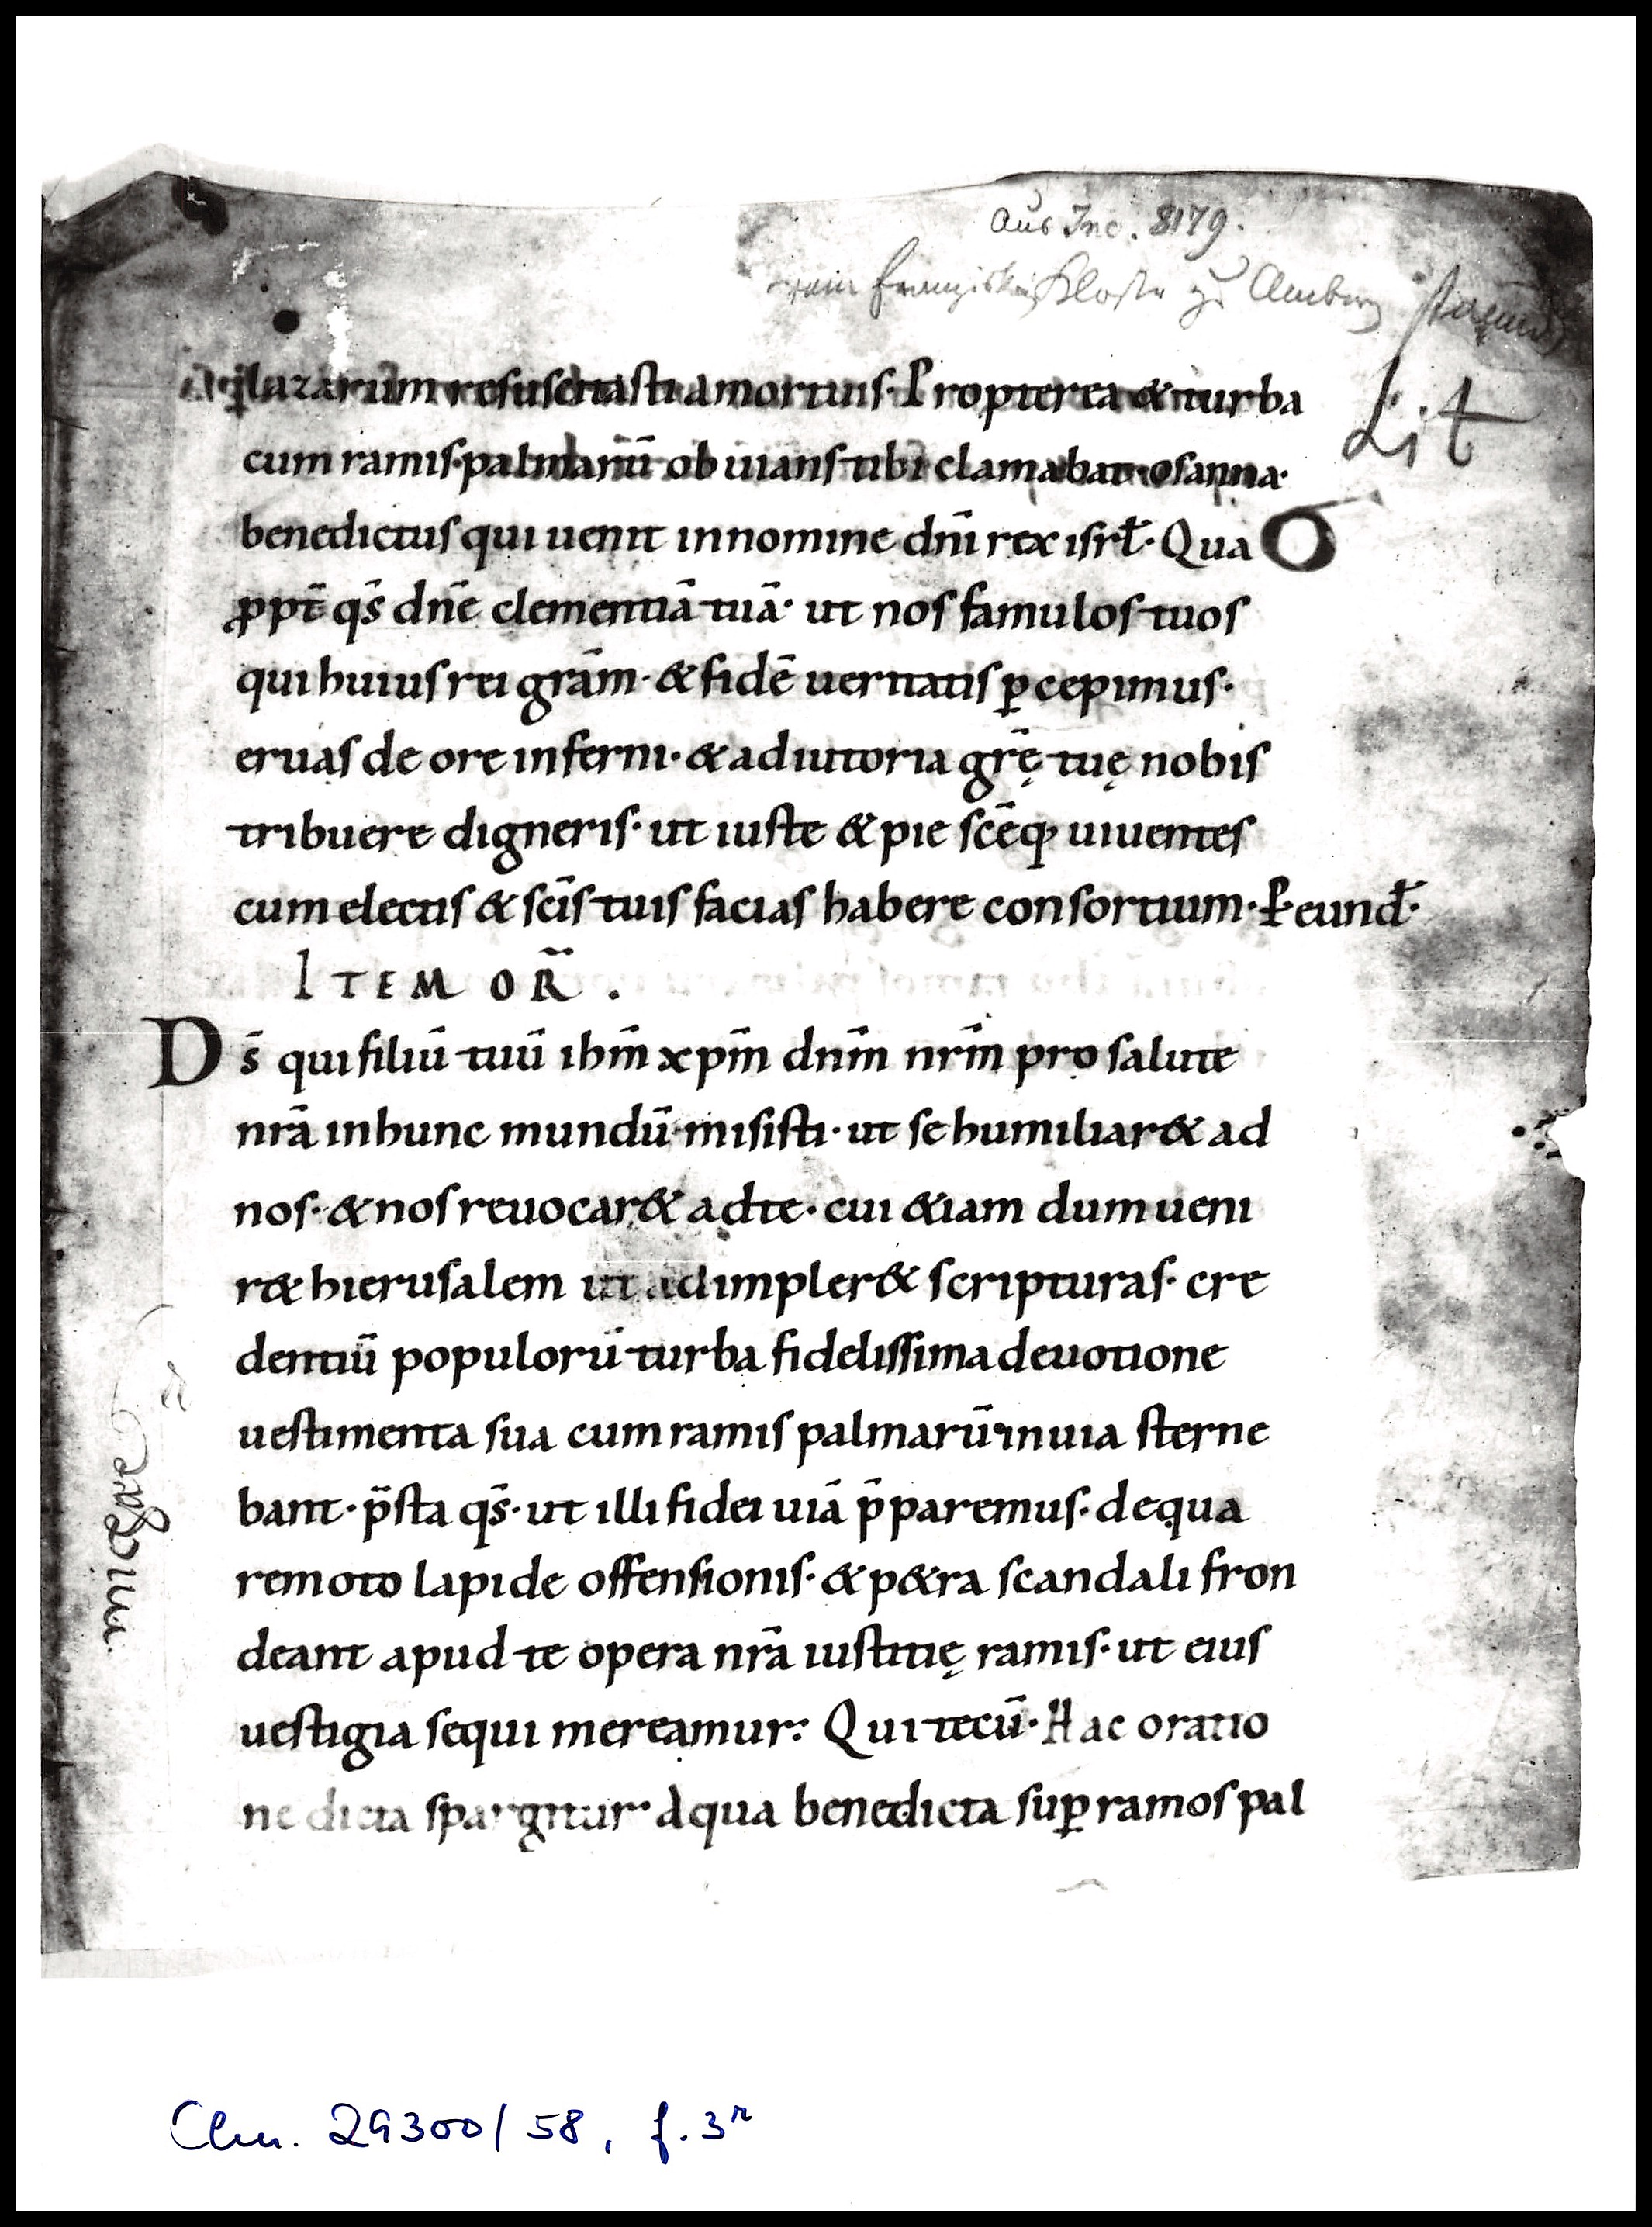 Aus Inc. 8179.
Kloster zu Amberg
lazarum resuscitasti a mortuis· Propterea & turba
Lit
cum ramis palmarū obuians tibi clamabat osanna·
benedictus qui uenit in nomine dñi rex isrł· Qua
ꝓpt̄ qs̄ dñe clementiā tuā· ut nos famulos tuos
qui huius rei grām· & fidē ueritatis ꝑcepimus·
eruas de ore inferni· & adiutoria grę̄ tuę nobis
tribuere digneris· ut iuste & pie scēq; uiuentes
cum electis & scīs tuis facias habere consortium· P eunđ·
ITEM OR̄.
Ds̄ qui filiū tuū ihm̄ xpm̄ dnm̄ nrm̄ pro salute
nrā in hunc mundū misisti· ut se humiliar& ad
nos· & nos reuocar& ad te· cui &iam dum ueni
r& hierusalem ut adimpler& scripturas· cre
dentiū populorū turba fidelissima deuotione
uestimenta sua cum ramis palmarū in uia sterne
bant· p̄sta qs̄· ut illi fidei uiā p̄paremus· de qua
remoto lapide offensionis· & p&ra scandali fron
deant apud te opera nrā iustitię ramis· ut eius
uestigia sequi mereamur: Qui tecū· Hac oratio
ne dicta spargitur aqua benedicta suꝑ ramos pal
Clm. 29300/58, f. 3r